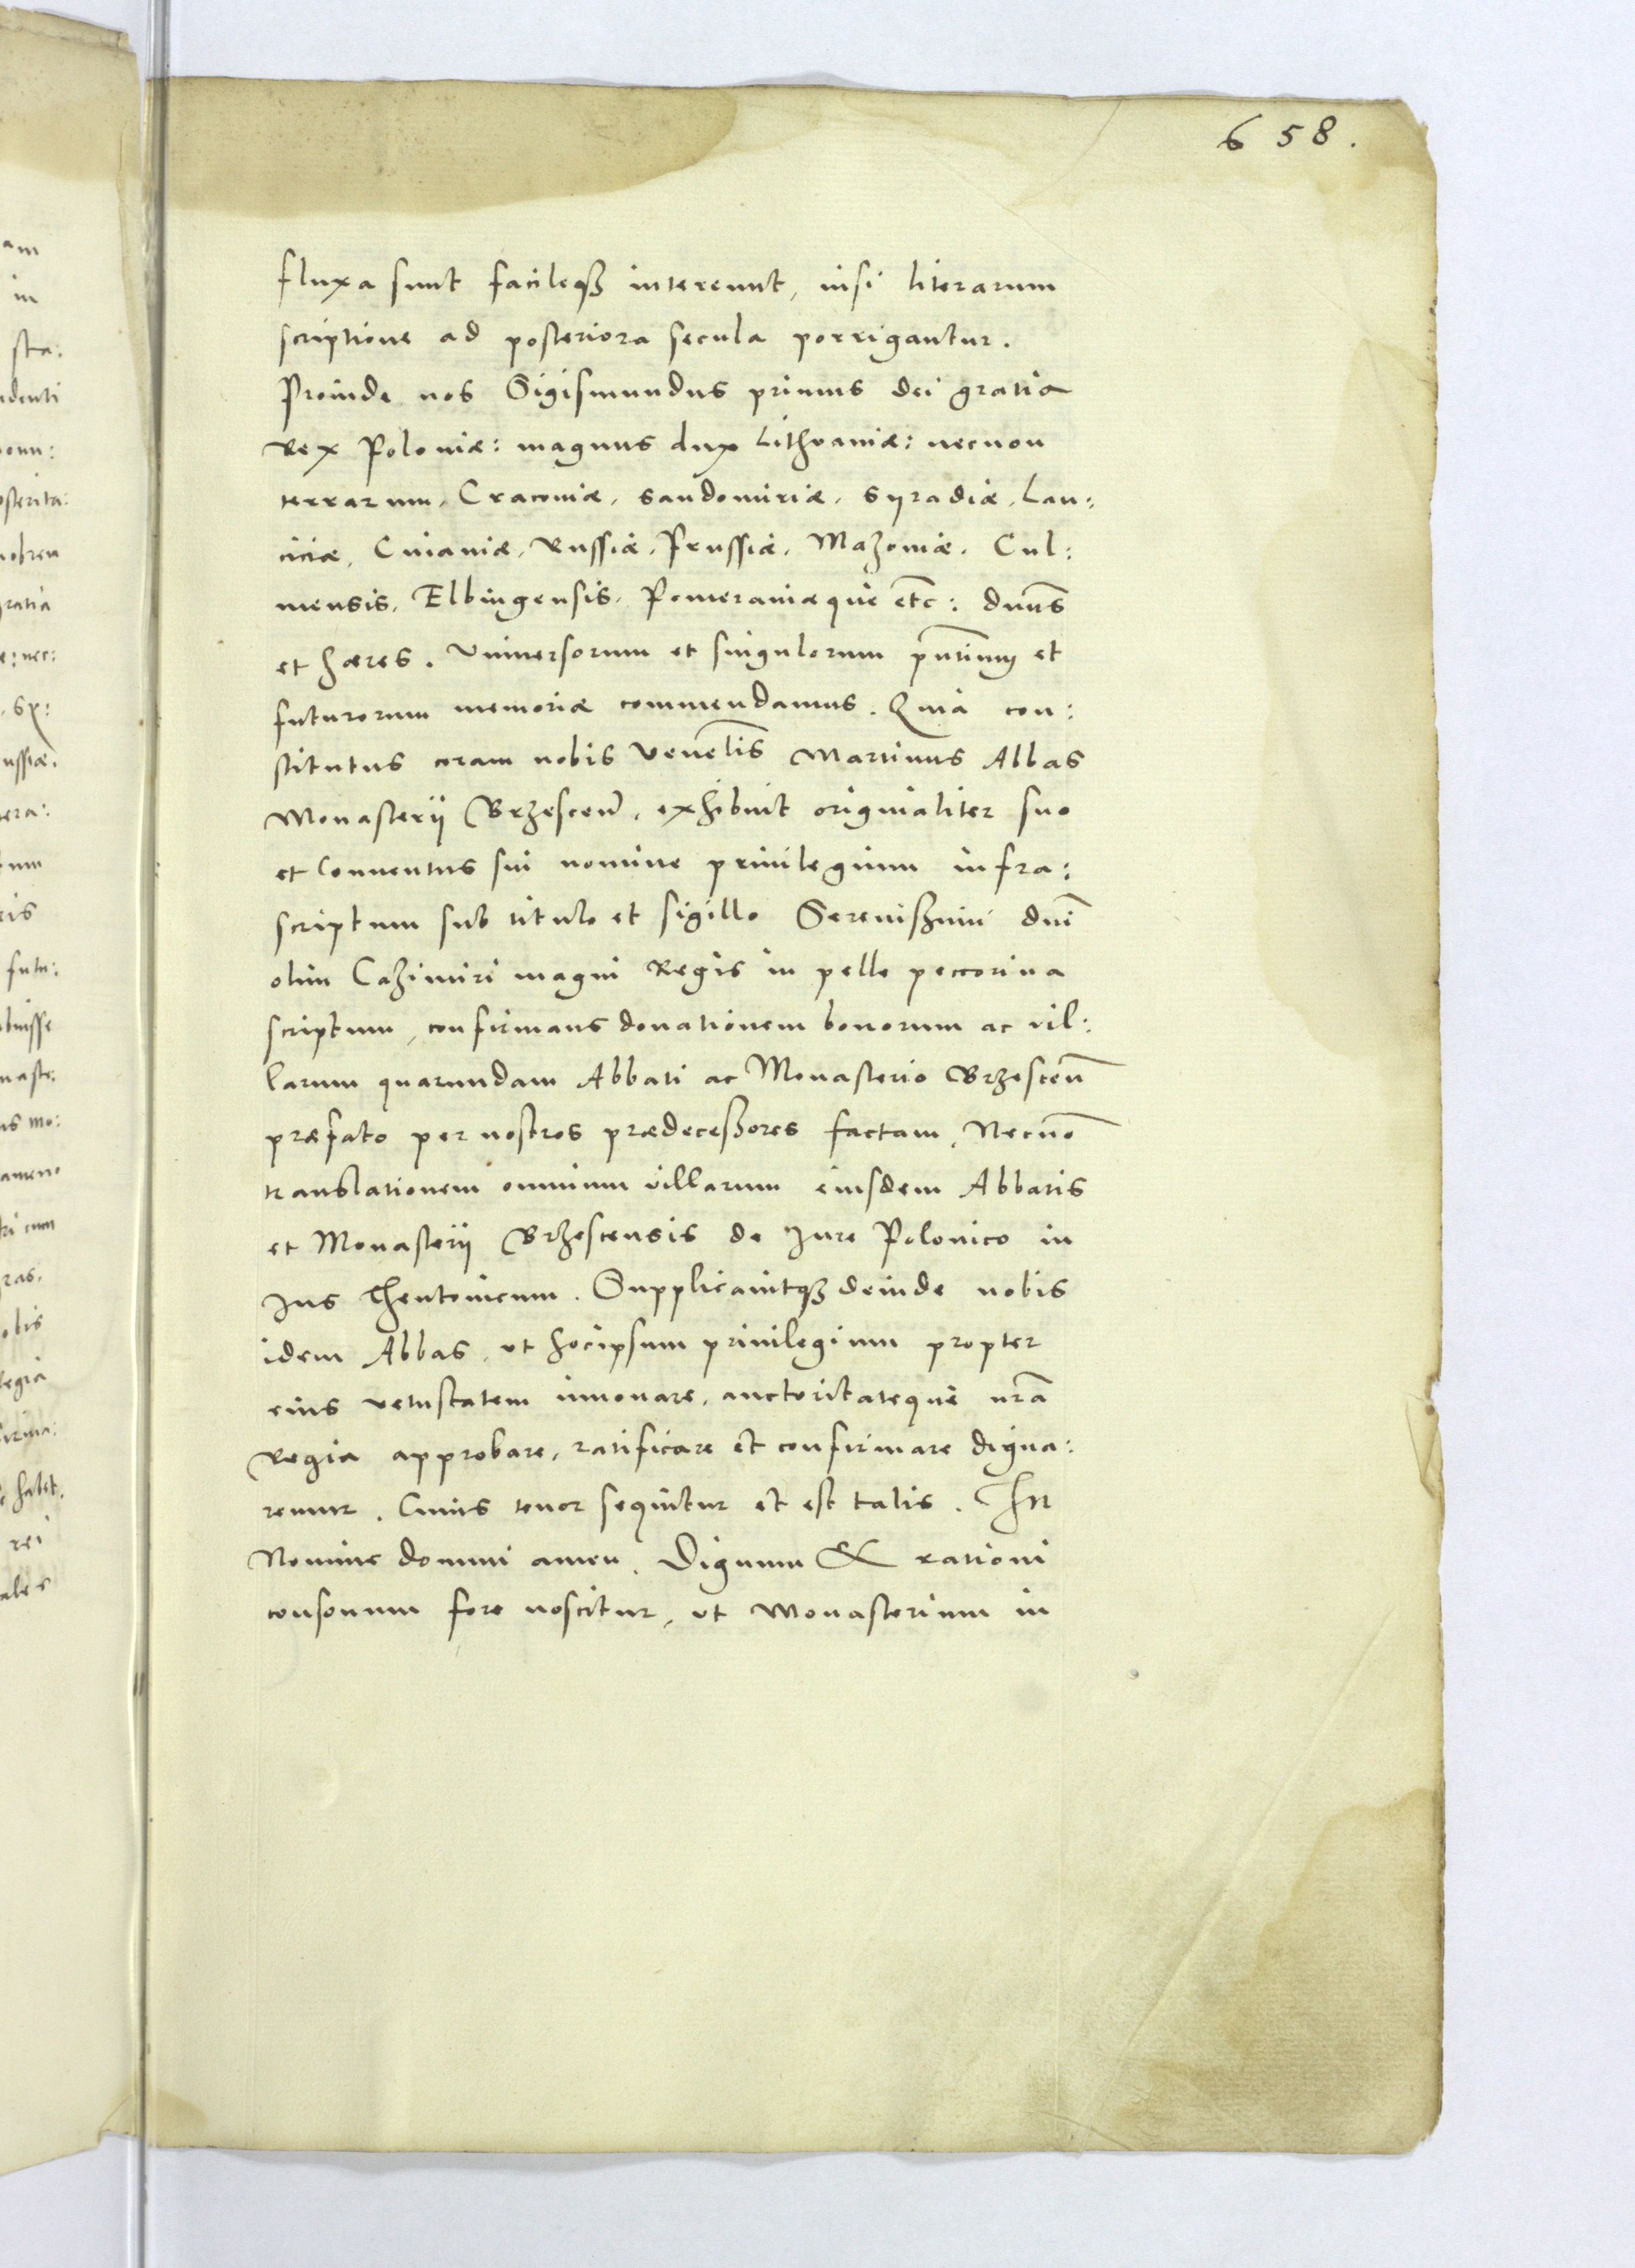 658.
fluxa sunt facileqꝫ intereunt, nisi literarum
scriptione ad posteriora secula porrigantur.
Proinde nos Sigismundus primus dei gratia
Rex Poloniæ: magnus dux Lithvaniæ: necnon
terrarum, Cracoviæ, Sandomiriæ, Syradiæ, Lan:
ciciæ, Cuiaviæ, Russiæ, Prussiæ, Mazoviæ, Cul:
mensis, Elbingensis, Pomeraniæque etc: dnūs
et hæres. Universorum et singulorum pn̄tium et
futurorum memoriæ commendamus. Quia con:
stitutus coram nobis Venēlis Martinus Abbas
Monasterij Brzescen̄, exhibuit originaliter suo
et Conventus sui nomine privilegium infra:
scriptum sub titulo et sigillo Serenißimi dnī
olim Cazimiri magni Regis in pelle peccorina
scriptum, confirmans donationem bonorum ac vil:
larum quarundam Abbati ac Monasterio Brzescen̄
præfato per nostros prædeceßores factam, Necnō
translationem omnium villarum eiusdem Abbatis
et Monasterij Brzescensis de Jure Polonico in
Jus Theutonicum. Supplicavitqꝫ deinde nobis
idem Abbas, ut hocipsum privilegium propter
eius vetustatem innovare, auctoritateque nrā
Regia approbare, ratificare et confirmare digna:
remur. Cuius tenor sequitur et est talis. In
Nomine domini amen. Dignum & rationi
consonum fore noscitur, ut Monasterium in
am
in
sta: